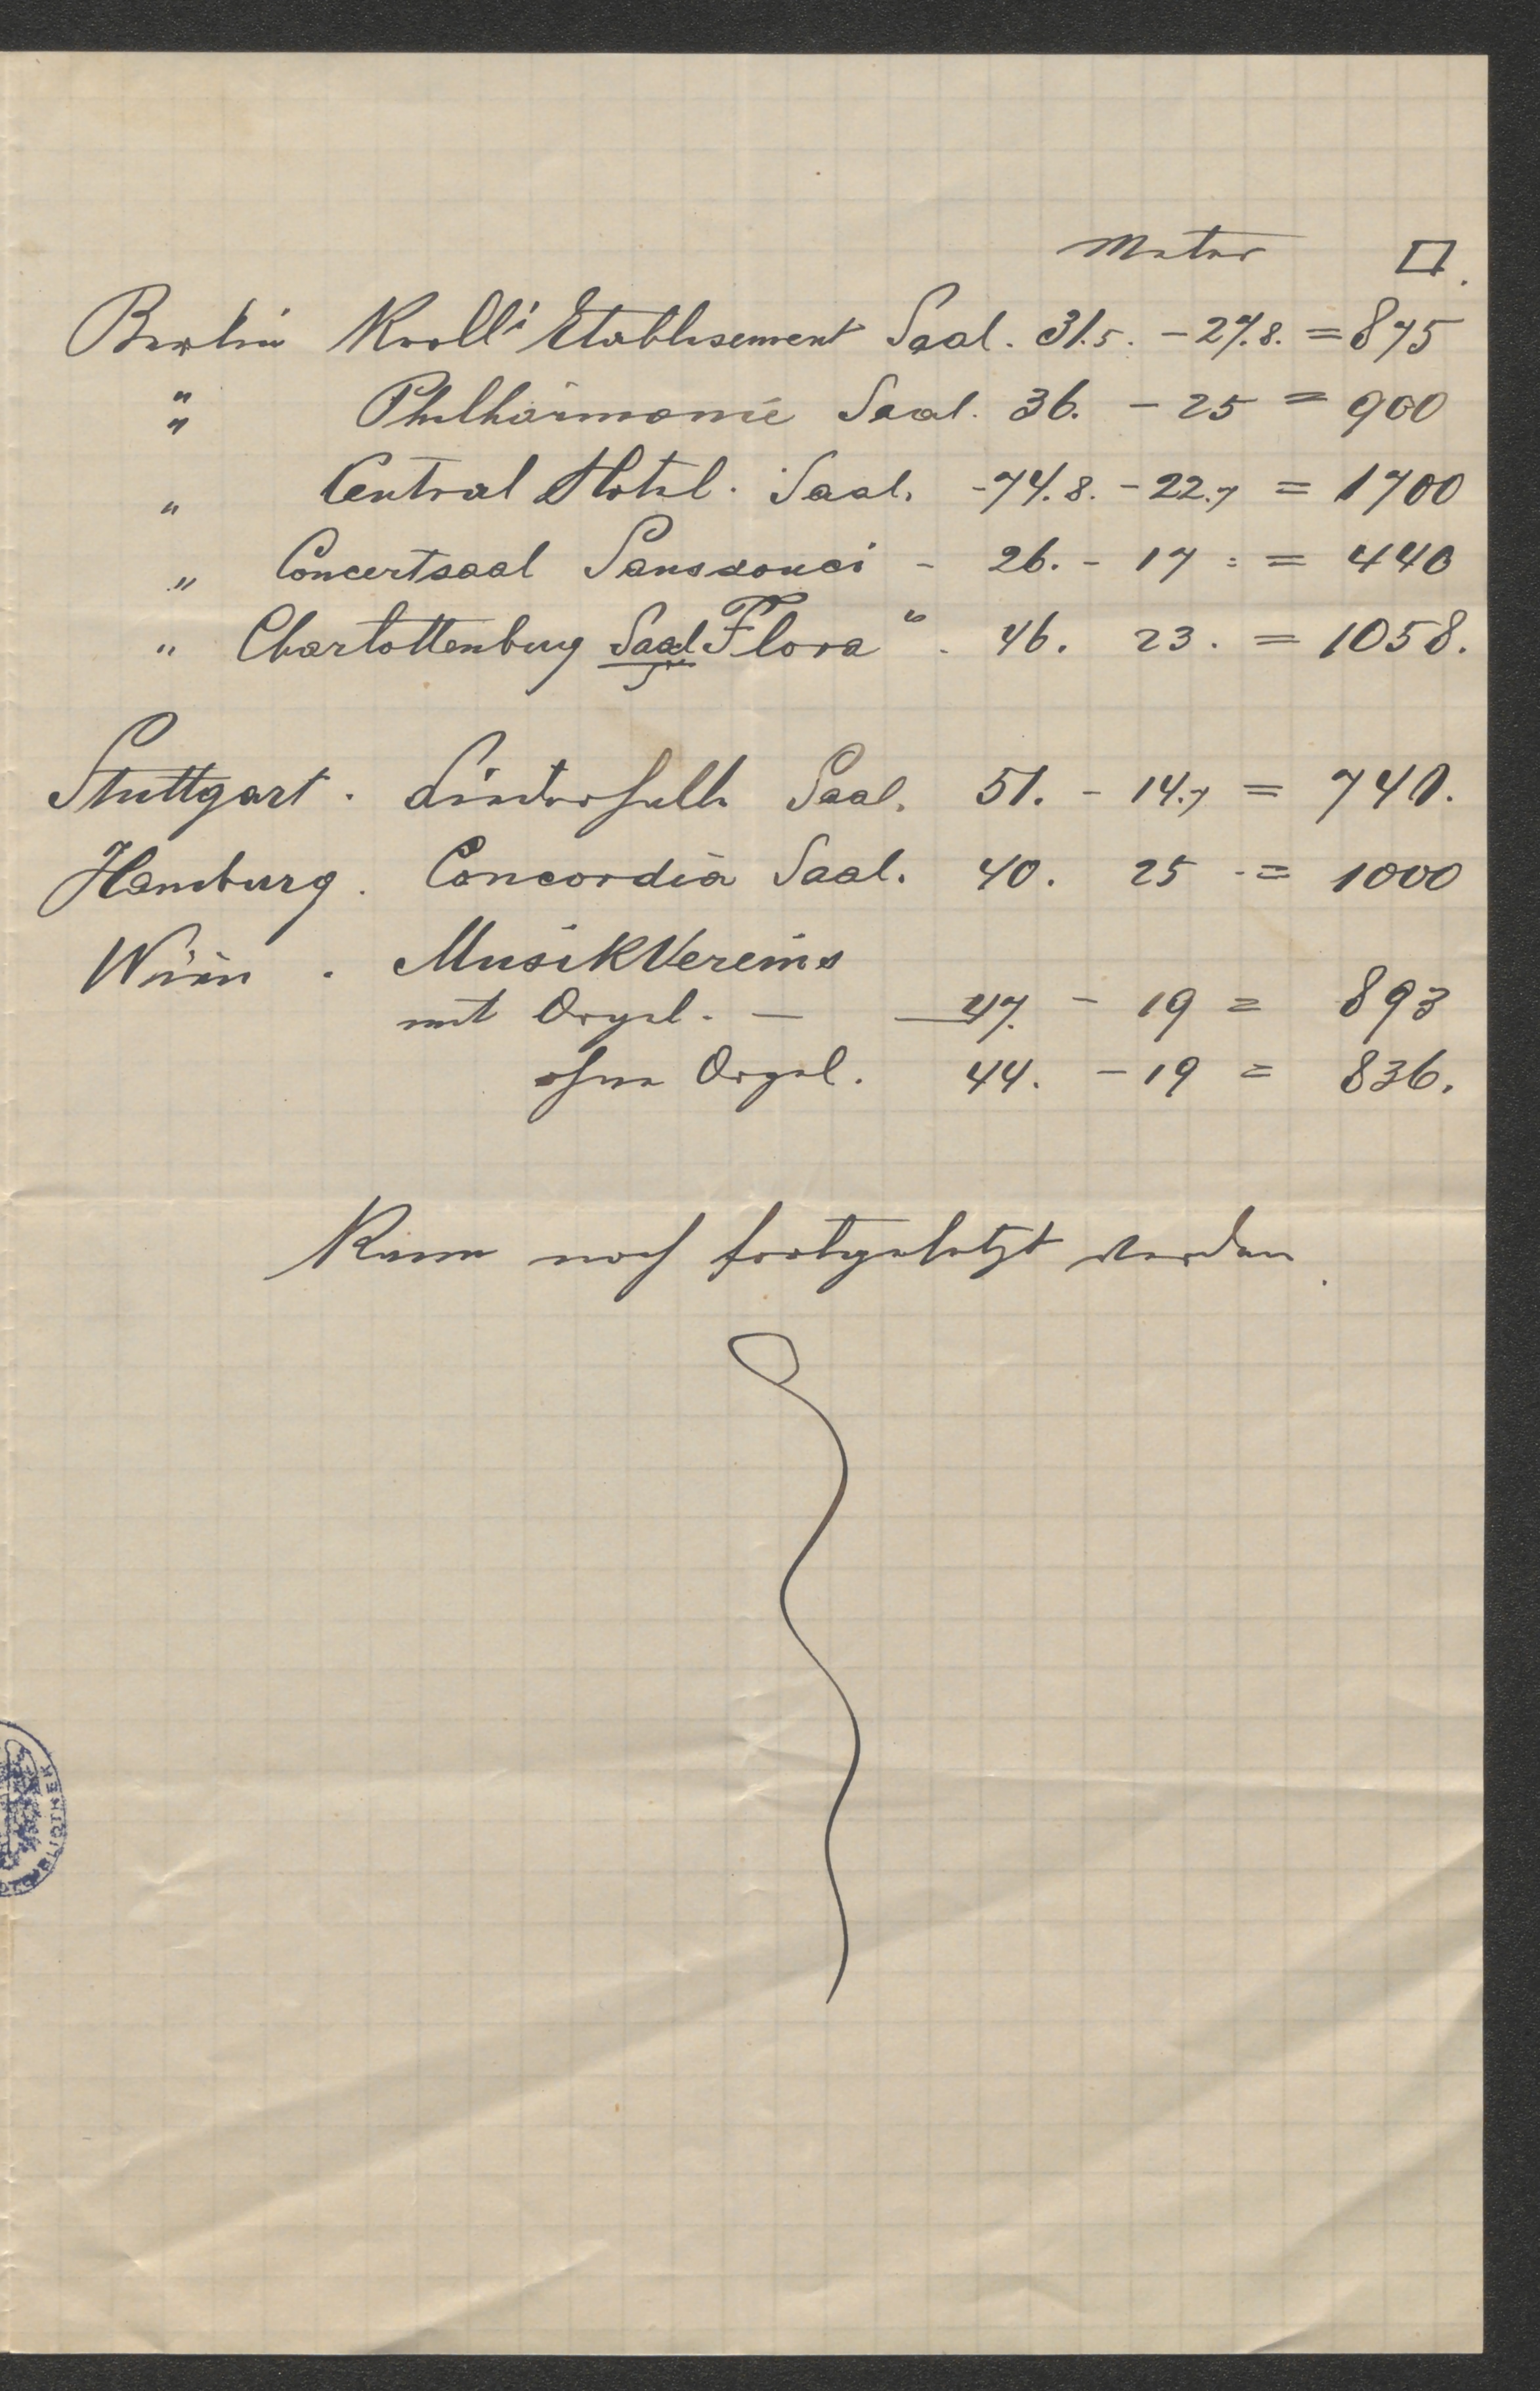 Meter □.
Berlin Kroll's Etablisement Saal. 31.5. – 27.8. = 875
" Philharmonie Saal. 36. – 25 = 900
" Central Hotel. Saal. - 74.8. – 22.7 = 1700
" Concertsaal Sanssouci - 26. - 17 : = 440
" Charlottenburg Saal Flora" . 46. 23. = 1058.
Stuttgart . Liederhalle Saal. 51. - 14.7 = 740.
Hamburg . Concordia Saal. 40. 25 = 1000
Wien . MusikVereins
mit Orgel. — 47. - 19 = 893
ohne Orgel. 44. - 19 = 836.
Kann noch fortgesetzt werden.